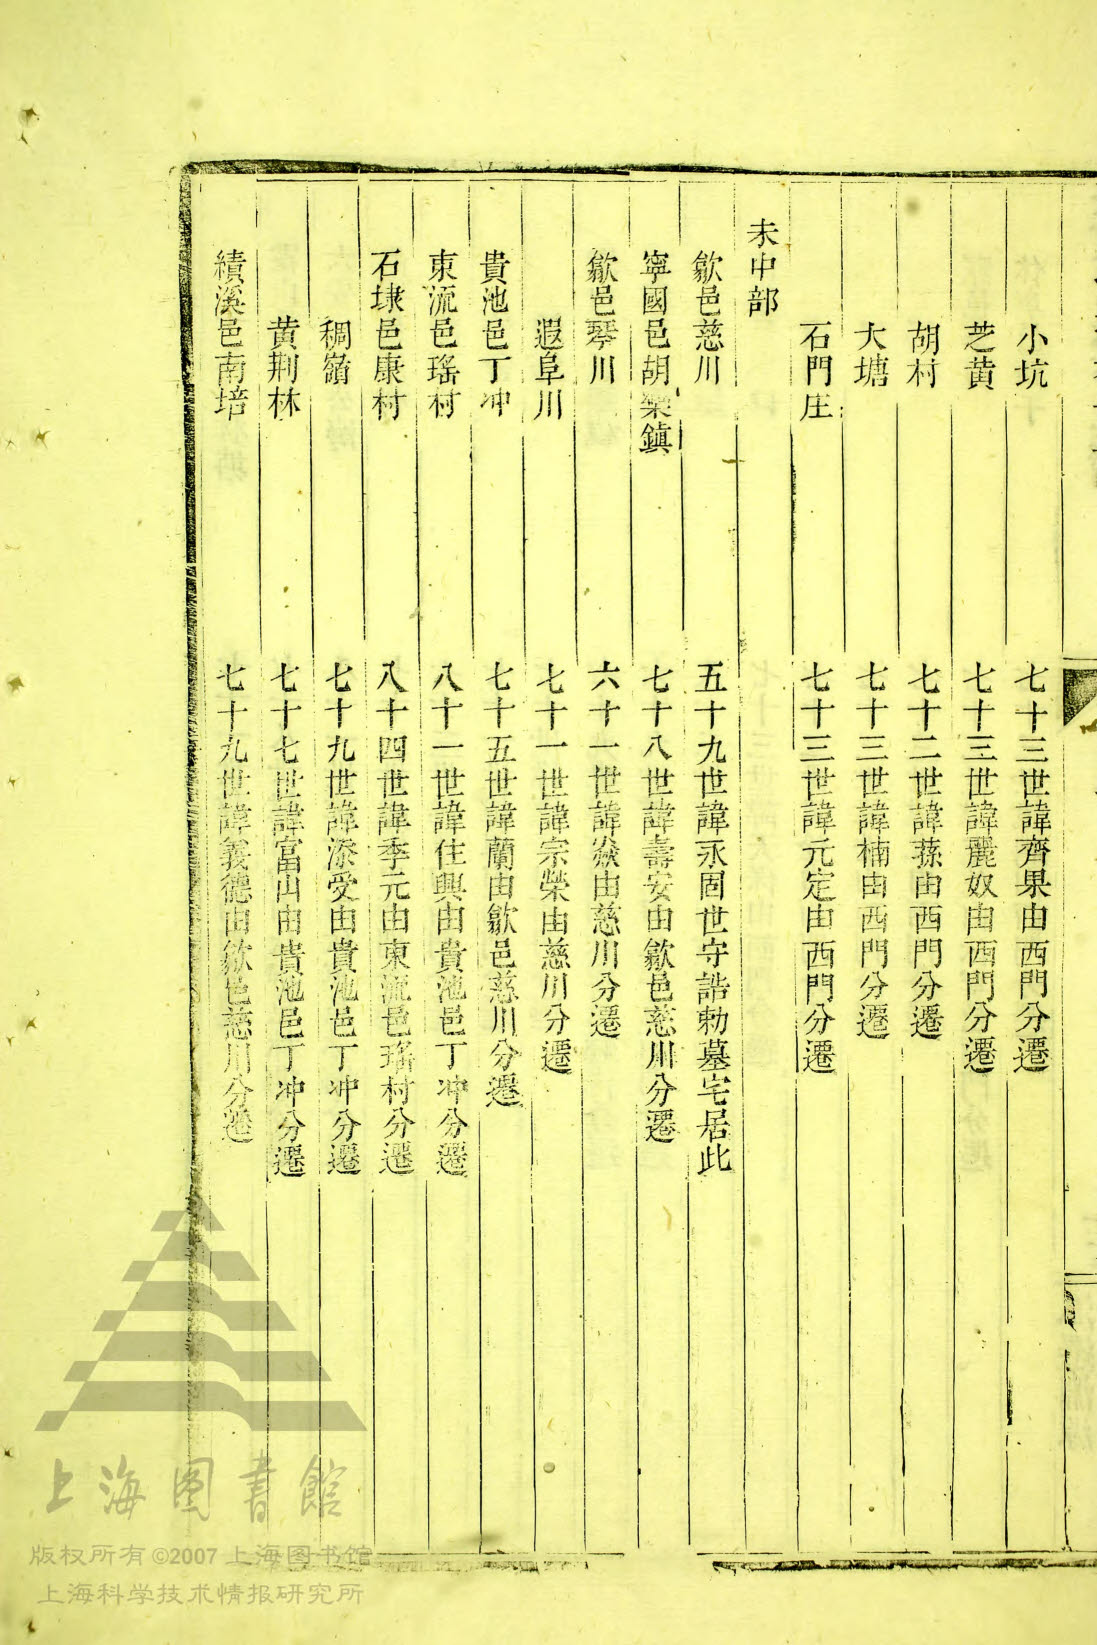 小坑　七十三世諱齊果由西門分遷
芝黄　七十三世諱麗奴由西門分遷
胡村　七十二世諱蓀由西門分遷
大塘　七十三世諱楠由西門分遷
石門庄　七十三世諱元定由西門分遷
未中部
歙邑慈川　五十九世諱永固世守誥勅墓宅居此
寧國邑胡樂鎮　七十八世諱壽安由歙邑慈川分遷
歙邑琴川　六十一世諱焱由慈川分遷
遐阜川　七十一世諱宗榮由慈川分遷
貴池邑丁冲　七十五世諱蘭由歙邑慈川分遷
東流邑瑤村　八十一世諱住興由貴池邑丁冲分遷
石埭邑康村　八十四世諱季元由東流邑瑤村分遷
稠嶺　七十九世諱添受由貴池邑丁冲分遷
黄荆林　七十七世諱富山由貴池邑丁冲分遷
績溪邑南培　七十九世諱義德由歙邑慈川分遷
上海图书馆
版权所有©2007 上海图书馆
上海科学技术情报研究所